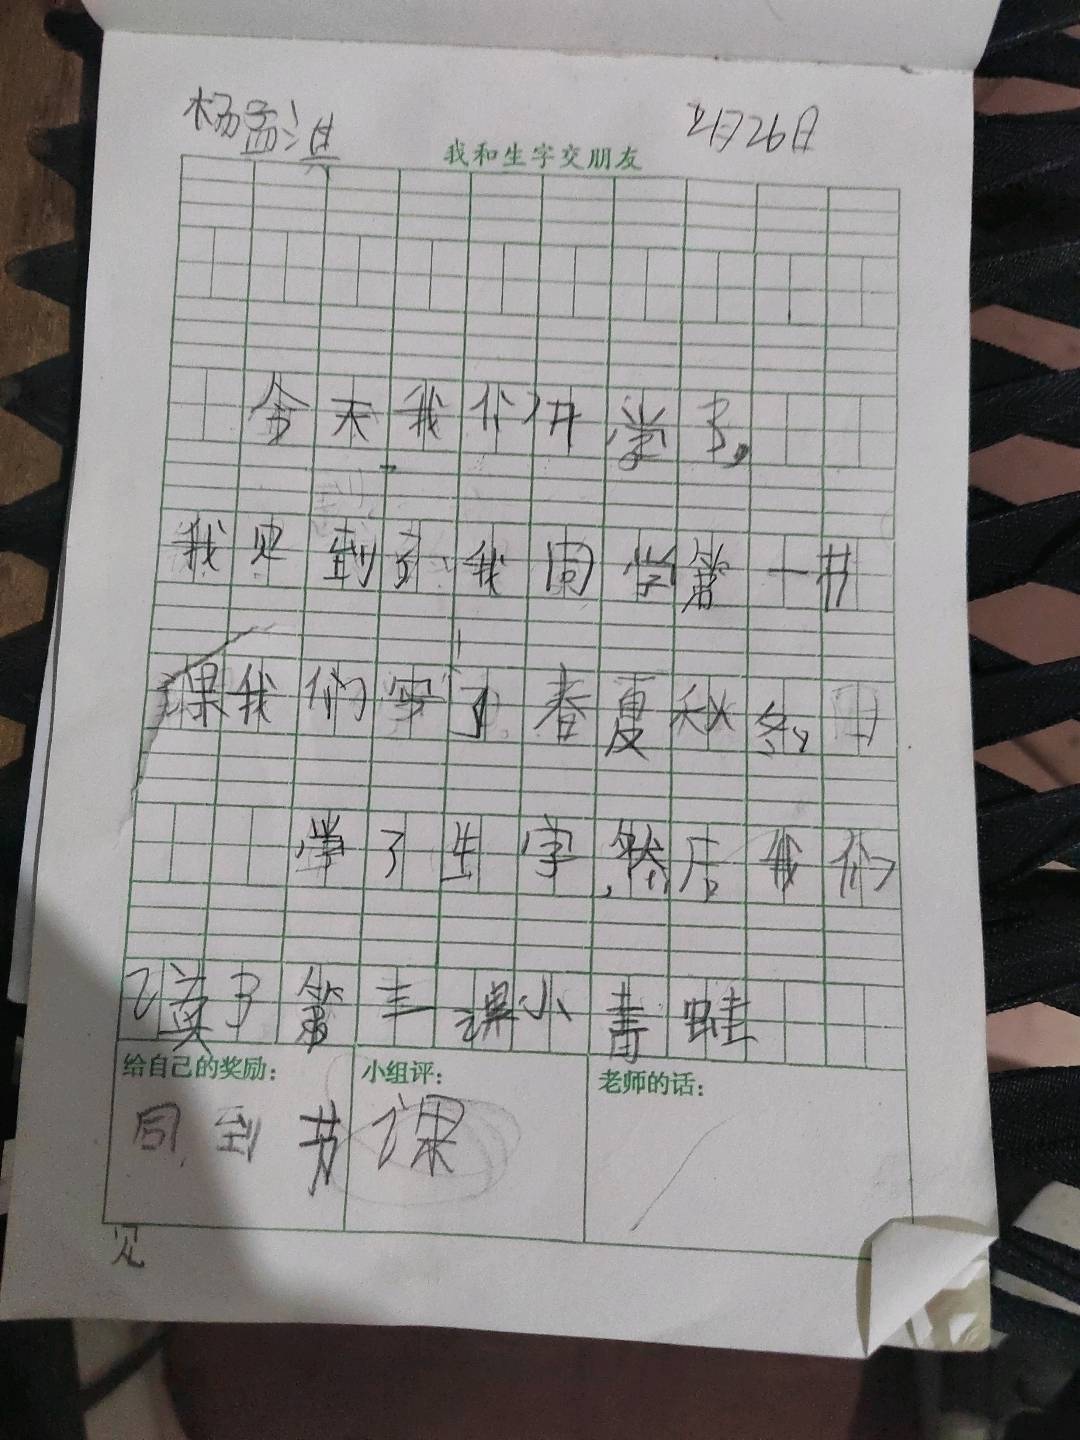 杨孟淇 2月26日
我和生字交朋友
今天我们开学了,
我见到了我同学第一节
课我们写了春夏秋冬,
学了生字,然后我们
读了第三课小青蛙
给自己的奖励: 小组评: 老师的话:
同 到 节 课
见